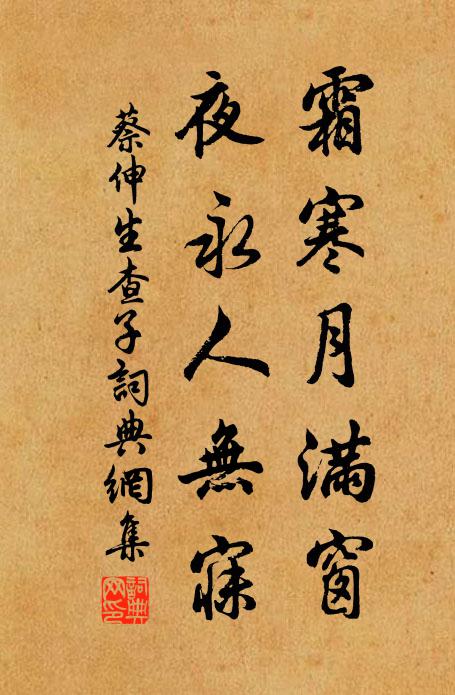 霜寒月滿窗
夜永人無寐
蔡伸生查子詞典網集
詞典網印